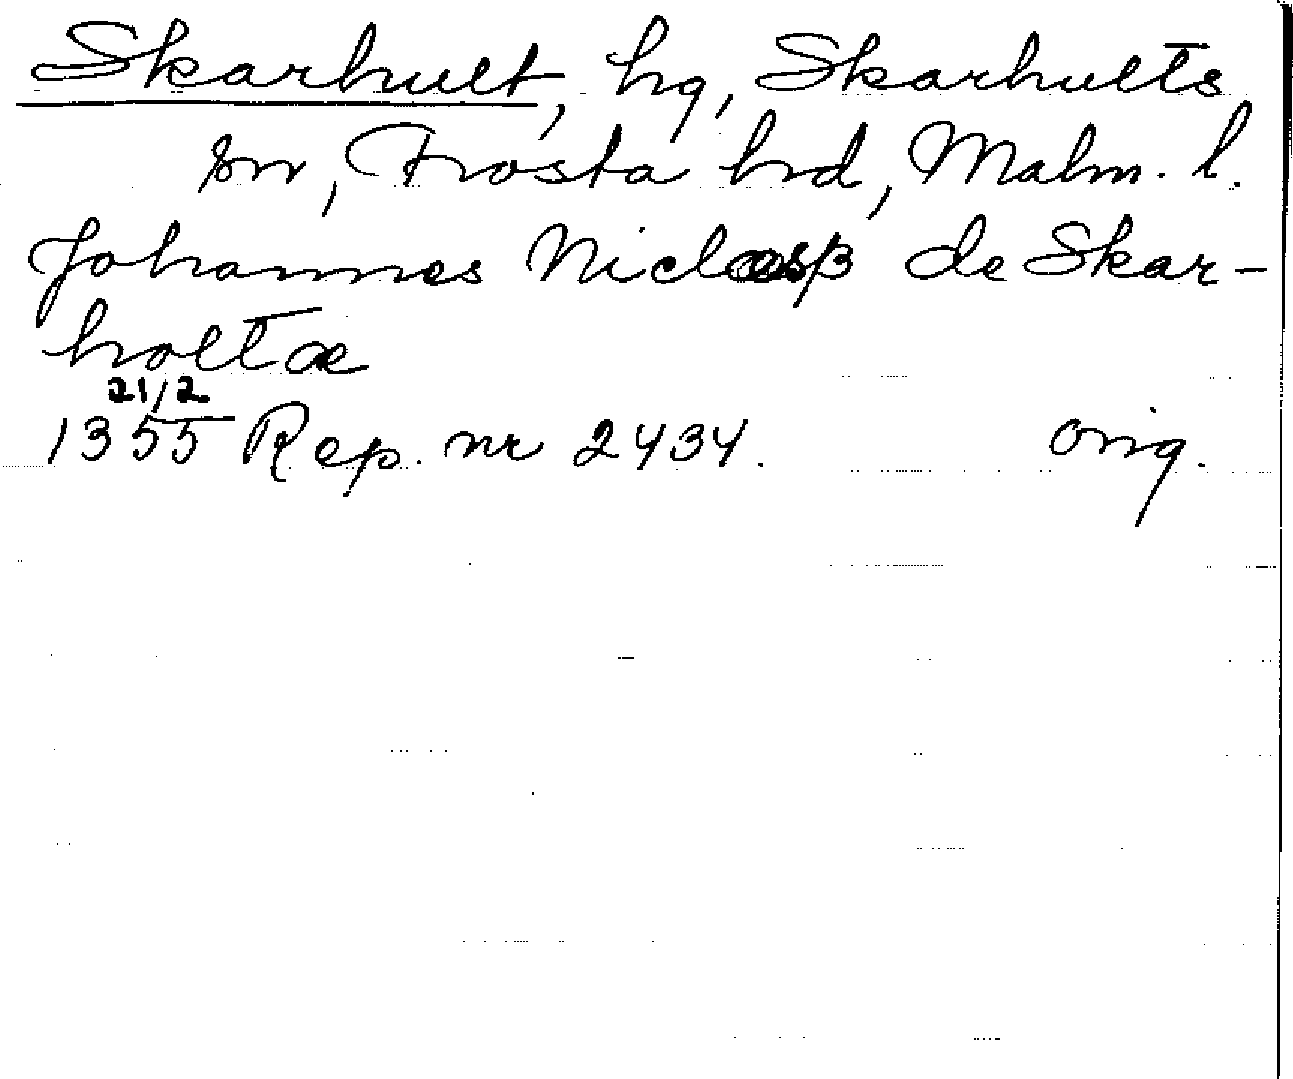 Skarhult, hg, Skarhults
sn, Frosta hrd, Malm. l.
Johannes Niclæsß de Skar-
holtæ
21/2
1355 Rep. nr 2434. orig.